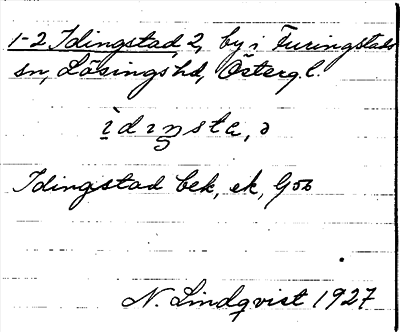 1-2 Idingstad, 2, by i Furingstads
sn, Lösings hd, Österg. l.
ìdıŋsta, ɔ
Idingstad bek, ek, Gsb
N. Lindqvist 1927